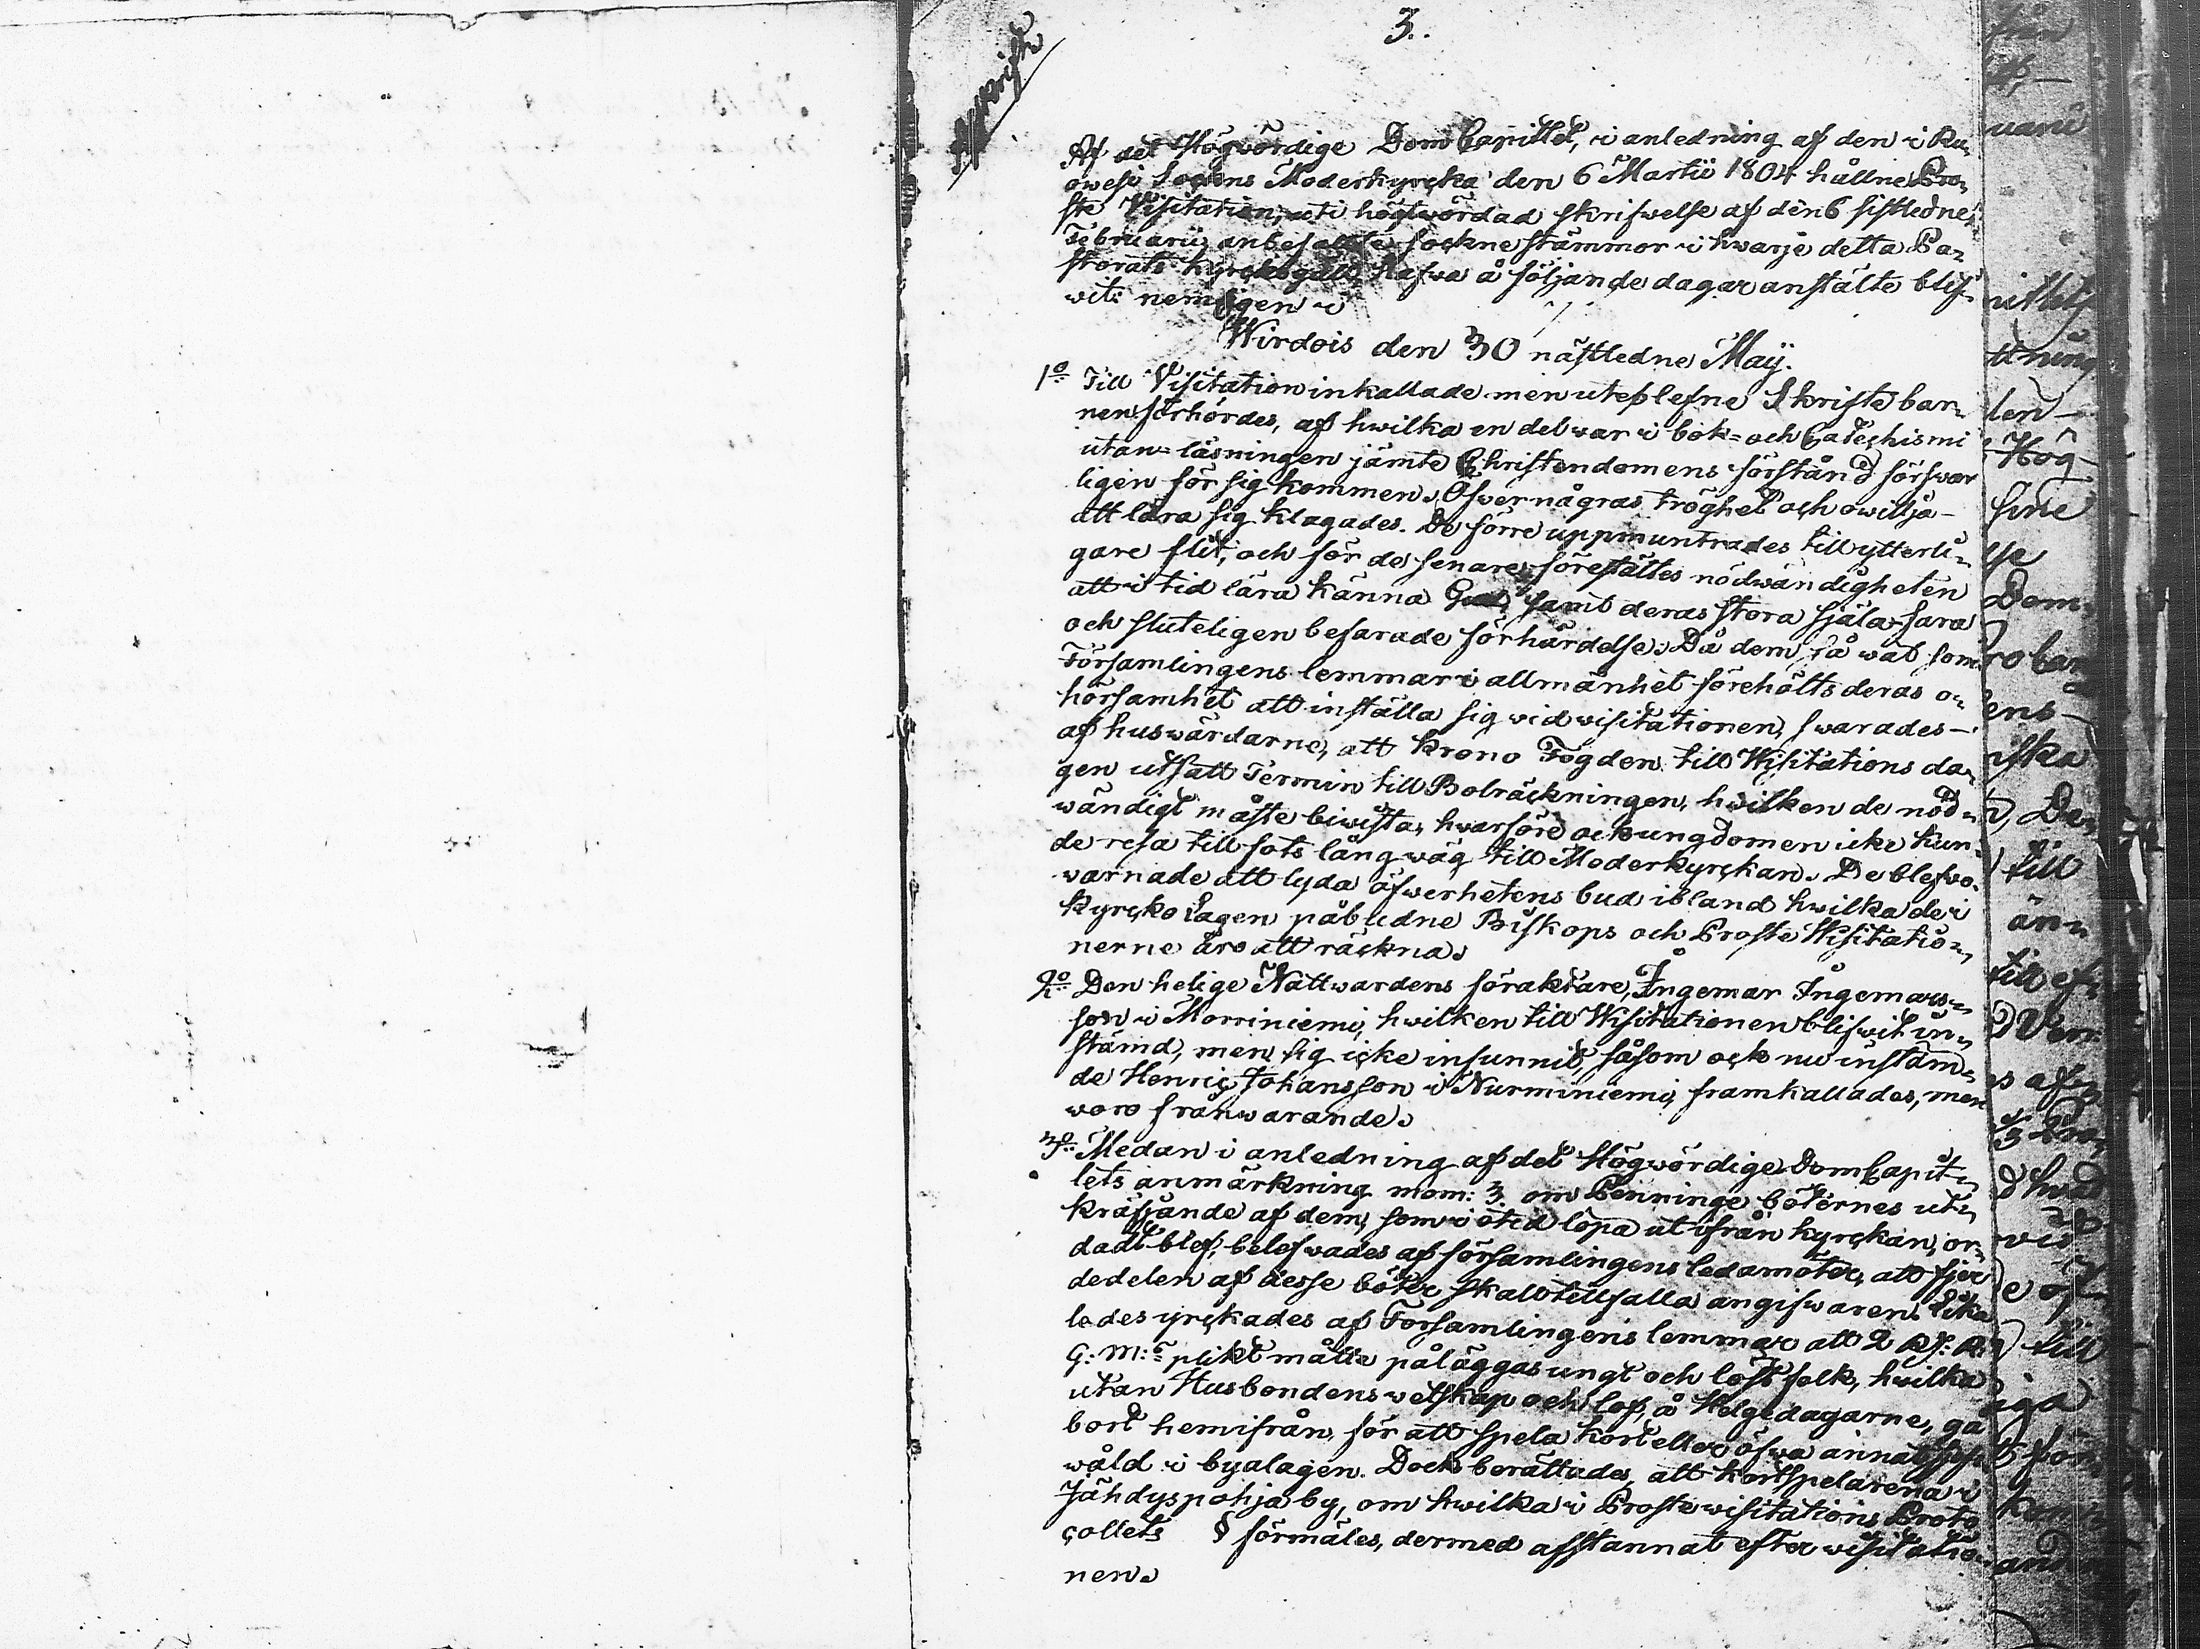 3.
Afskrift
Af det Högwördige DomCapitlet, i anledning af den i Ru-
owesi Sockens Moderkyrcka den 6 Martii 1804 hållne Pro-
ste Visitation, uti högtwördad skrifwelse af den 6 sistledne
Februarii anbefallte sockne stämmor i hwarje detta Pa-
storats Kyrckogäll, hafwa å följande dagar anstälte blif-
wit: nemligen i
Wirdois den 30 nästledne Maij.
1º Till Visitation inkallade men uteblefne Skriftebar-
nen förhördes, af hwilka en del war i bok- och Catechismi
utan-läsningen jämte Christendomens förstånd förswar
ligen för sig kommen. Öfwer några tröghet och owillja
att lära sig klagades. De förre uppmuntrades till ytterli-
gare flit, och för de senare förestältes nödwändigheten
att i tid lära känna Gud, samt deras stora själa-fara
och sluteligen befarade förhärdelse. Då dem så wäl som
Församlingens lemmar i allmänhet förehölts deras o-
hörsamhet att inställa sig wid wisitationen, swarades
af huswärdarne, att Krono Fogden till Wisitations da-
gen utsatt Termin till Bolräckningen, hwilken de nöd-
wändigt måste biwista, hwarföre ock ungdomen icke kun-
de resa till fots lång wäg till Moderkyrckan. De blefwo
warnade att lyda öfwerhetens bud ibland hwilka de i
Kyrcko Lagen påbudne Biskops och Proste Wisitatio-
nerne äro att räckna.
2º Den helige Nattwardens föraktare, Ingemar Ingemars-
son i Morriniemi, hwilken till Wisitationen blifwit in-
stämd, men sig icke infunnit, såsom ock nu instäm-
de Henric Johansson i Nurminiemi, framkallades, men
woro frånwarande.
3º Medan i anledning af det Högwördige DomCapit-
lets anmärkning mom: 3. om Penninge böternes ut-
kräfjande af dem, som i otid löpa ut ifrån kyrckan, or-
dadt blef, belefwades af församlingens ledamöter, att fjer
dedelen af desse böter skall tillfalla angifwaren. Lika
ledes yrckades af Församlingens lemmar att 2 Rd: R:
G: M:s plikt måtte påläggas ungt och löst folk, hwilka
utan Husbondens wetskap och lof, å Helgedagarne, gå
bort hemifrån, för att spela kort eller öfwa annat sjelf
wåld i byalagen. Dock berättades, att kortspelarena i
Jähdyspohja by, om hwilka i Proste wisitations Proto
collets § förmäles, dermed afstannat efter wisitatio-
nen.